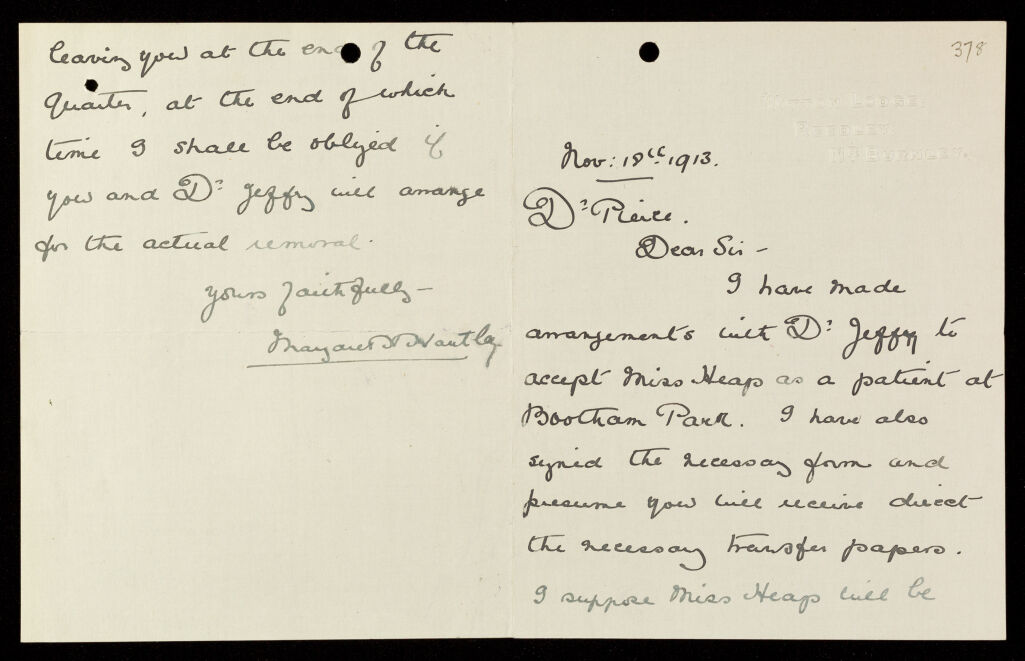 378
REEDLEY.
Nr BURNLEY.
Nov: 18th 1913.
Dr Pierce.
Dear Sir -
I have made
arrangements with Dr Jeffry to
accept Miss Heap as a patient at
Bootham Park. I have also
signed the necessary form and
presume you will receive direct
the necessary transfer papers.
I suppose Miss Heap will be
leaving you at the end of the
Quarter, at the end of which
time I shall be obliged if
you and Dr Jeffry will arrange
for the actual removal.
yours faithfully -
Margaret Hartley